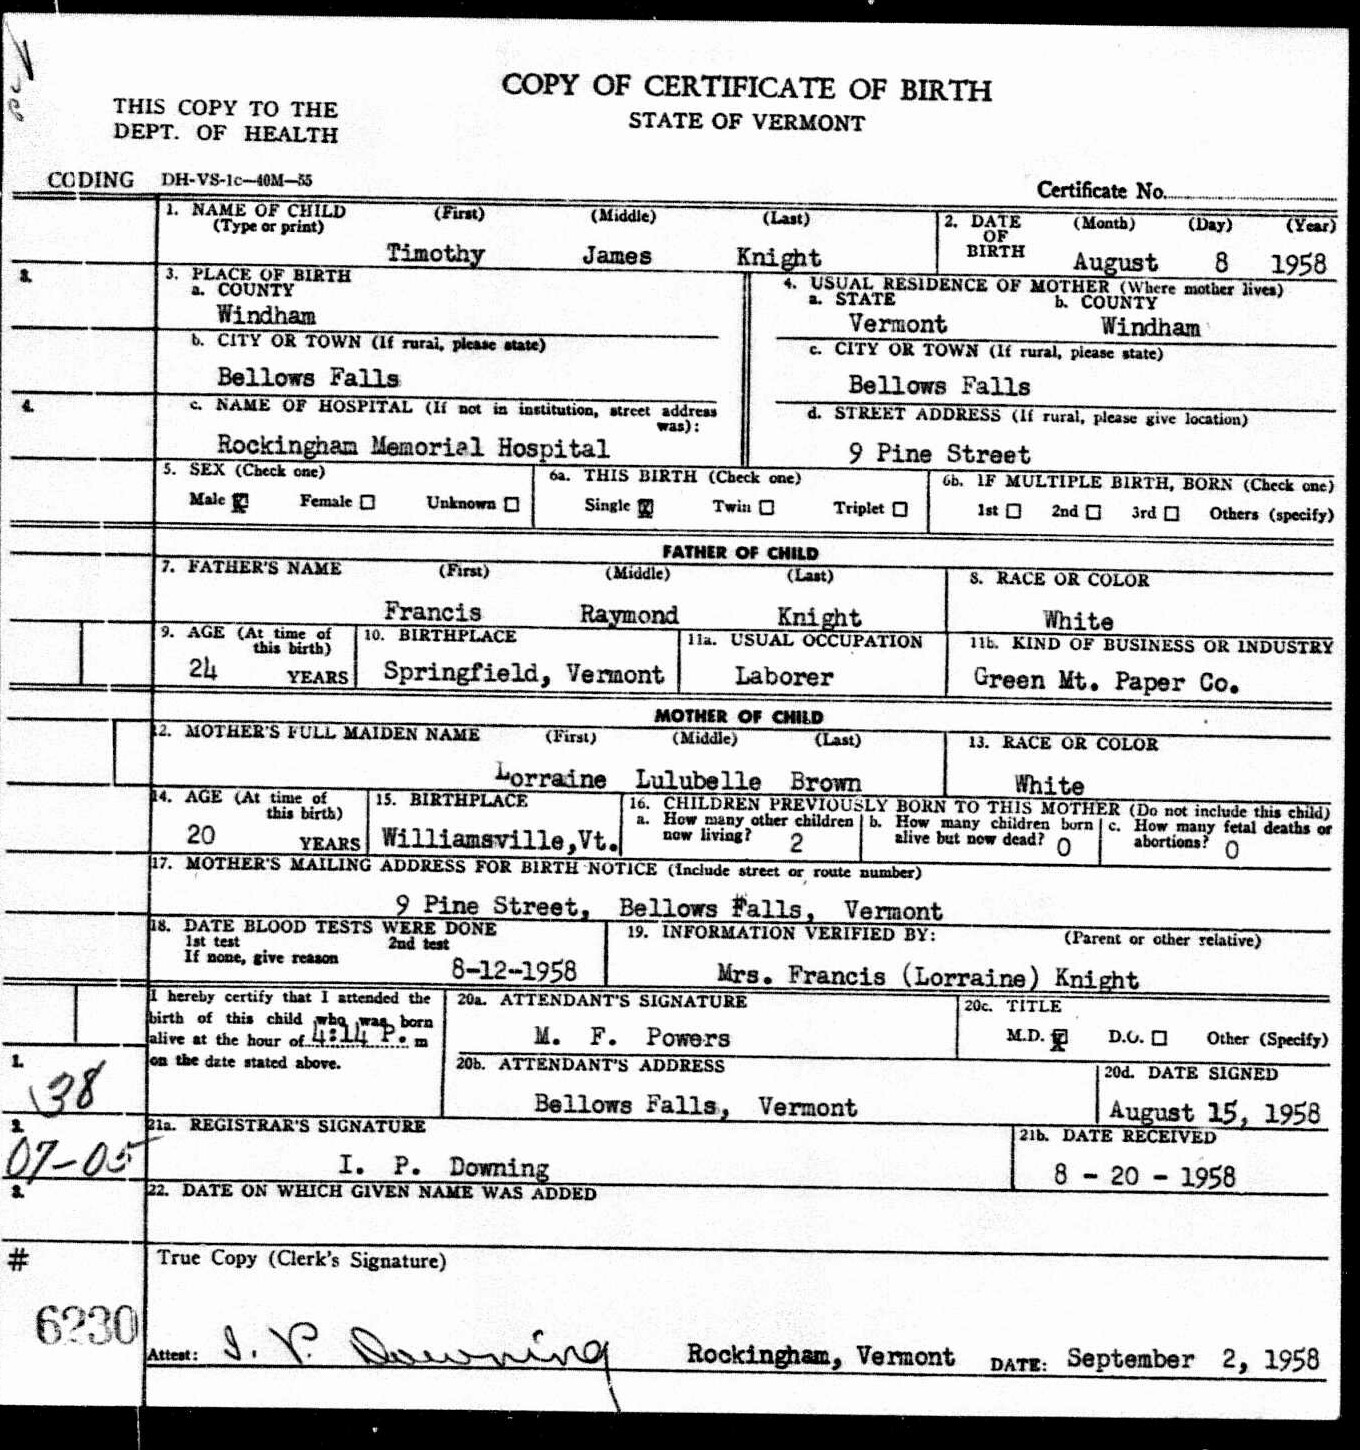 COPY OF CERTIFICATE OF BIRTH
STATE OF VERMONT
THIS COPY TO THE
DEPT. OF HEALTH
CODING DH-VS-1c—40M—55
Certificate No.
1. NAME OF CHILD (First) (Middle) (Last)
(Type or print)
Timothy James Knight
2. DATE OF BIRTH (Month) (Day) (Year)
August 8 1958
3. PLACE OF BIRTH
a. COUNTY
Windham
b. CITY OR TOWN (If rural, please state)
Bellows Falls
4.
c. NAME OF HOSPITAL (If not in institution, street address was):
Rockingham Memorial Hospital
4. USUAL RESIDENCE OF MOTHER (Where mother lives)
a. STATE b. COUNTY
Vermont Windham
c. CITY OR TOWN (If rural, please state)
Bellows Falls
d. STREET ADDRESS (If rural, please give location)
9 Pine Street
5. SEX (Check one)
Male Female Unknown
6a. THIS BIRTH (Check one)
Single Twin Triplet
6b. IF MULTIPLE BIRTH, BORN (Check one)
1st 2nd 3rd Others (specify)
FATHER OF CHILD
7. FATHER'S NAME (First) (Middle) (Last)
Francis Raymond Knight
8. RACE OR COLOR
White
9. AGE (At time of this birth)
24 YEARS
10. BIRTHPLACE
Springfield, Vermont
11a. USUAL OCCUPATION
Laborer
11b. KIND OF BUSINESS OR INDUSTRY
Green Mt. Paper Co.
MOTHER OF CHILD
12. MOTHER'S FULL MAIDEN NAME (First) (Middle) (Last)
Lorraine Lulubelle Brown
13. RACE OR COLOR
White
14. AGE (At time of this birth)
20 YEARS
15. BIRTHPLACE
Williamsville,Vt.
16. CHILDREN PREVIOUSLY BORN TO THIS MOTHER (Do not include this child)
a. How many other children now living? 2
b. How many children born alive but now dead? 0
c. How many fetal deaths or abortions? 0
17. MOTHER'S MAILING ADDRESS FOR BIRTH NOTICE (Include street or route number)
9 Pine Street, Bellows Falls, Vermont
18. DATE BLOOD TESTS WERE DONE
1st test 2nd test
If none, give reason
8-12-1958
19. INFORMATION VERIFIED BY: (Parent or other relative)
Mrs. Francis (Lorraine) Knight
I hereby certify that I attended the
birth of this child who was born
alive at the hour of 4:14 P. m
on the date stated above.
20a. ATTENDANT'S SIGNATURE
M. F. Powers
20c. TITLE
M.D. D.O. Other (Specify)
20b. ATTENDANT'S ADDRESS
Bellows Falls, Vermont
20d. DATE SIGNED
August 15, 1958
1.
38
21a. REGISTRAR'S SIGNATURE
I. P. Downing
21b. DATE RECEIVED
8 - 20 - 1958
07-05
22. DATE ON WHICH GIVEN NAME WAS ADDED
#
True Copy (Clerk's Signature)
6230
Attest: I. P. Downing Rockingham, Vermont DATE: September 2, 1958